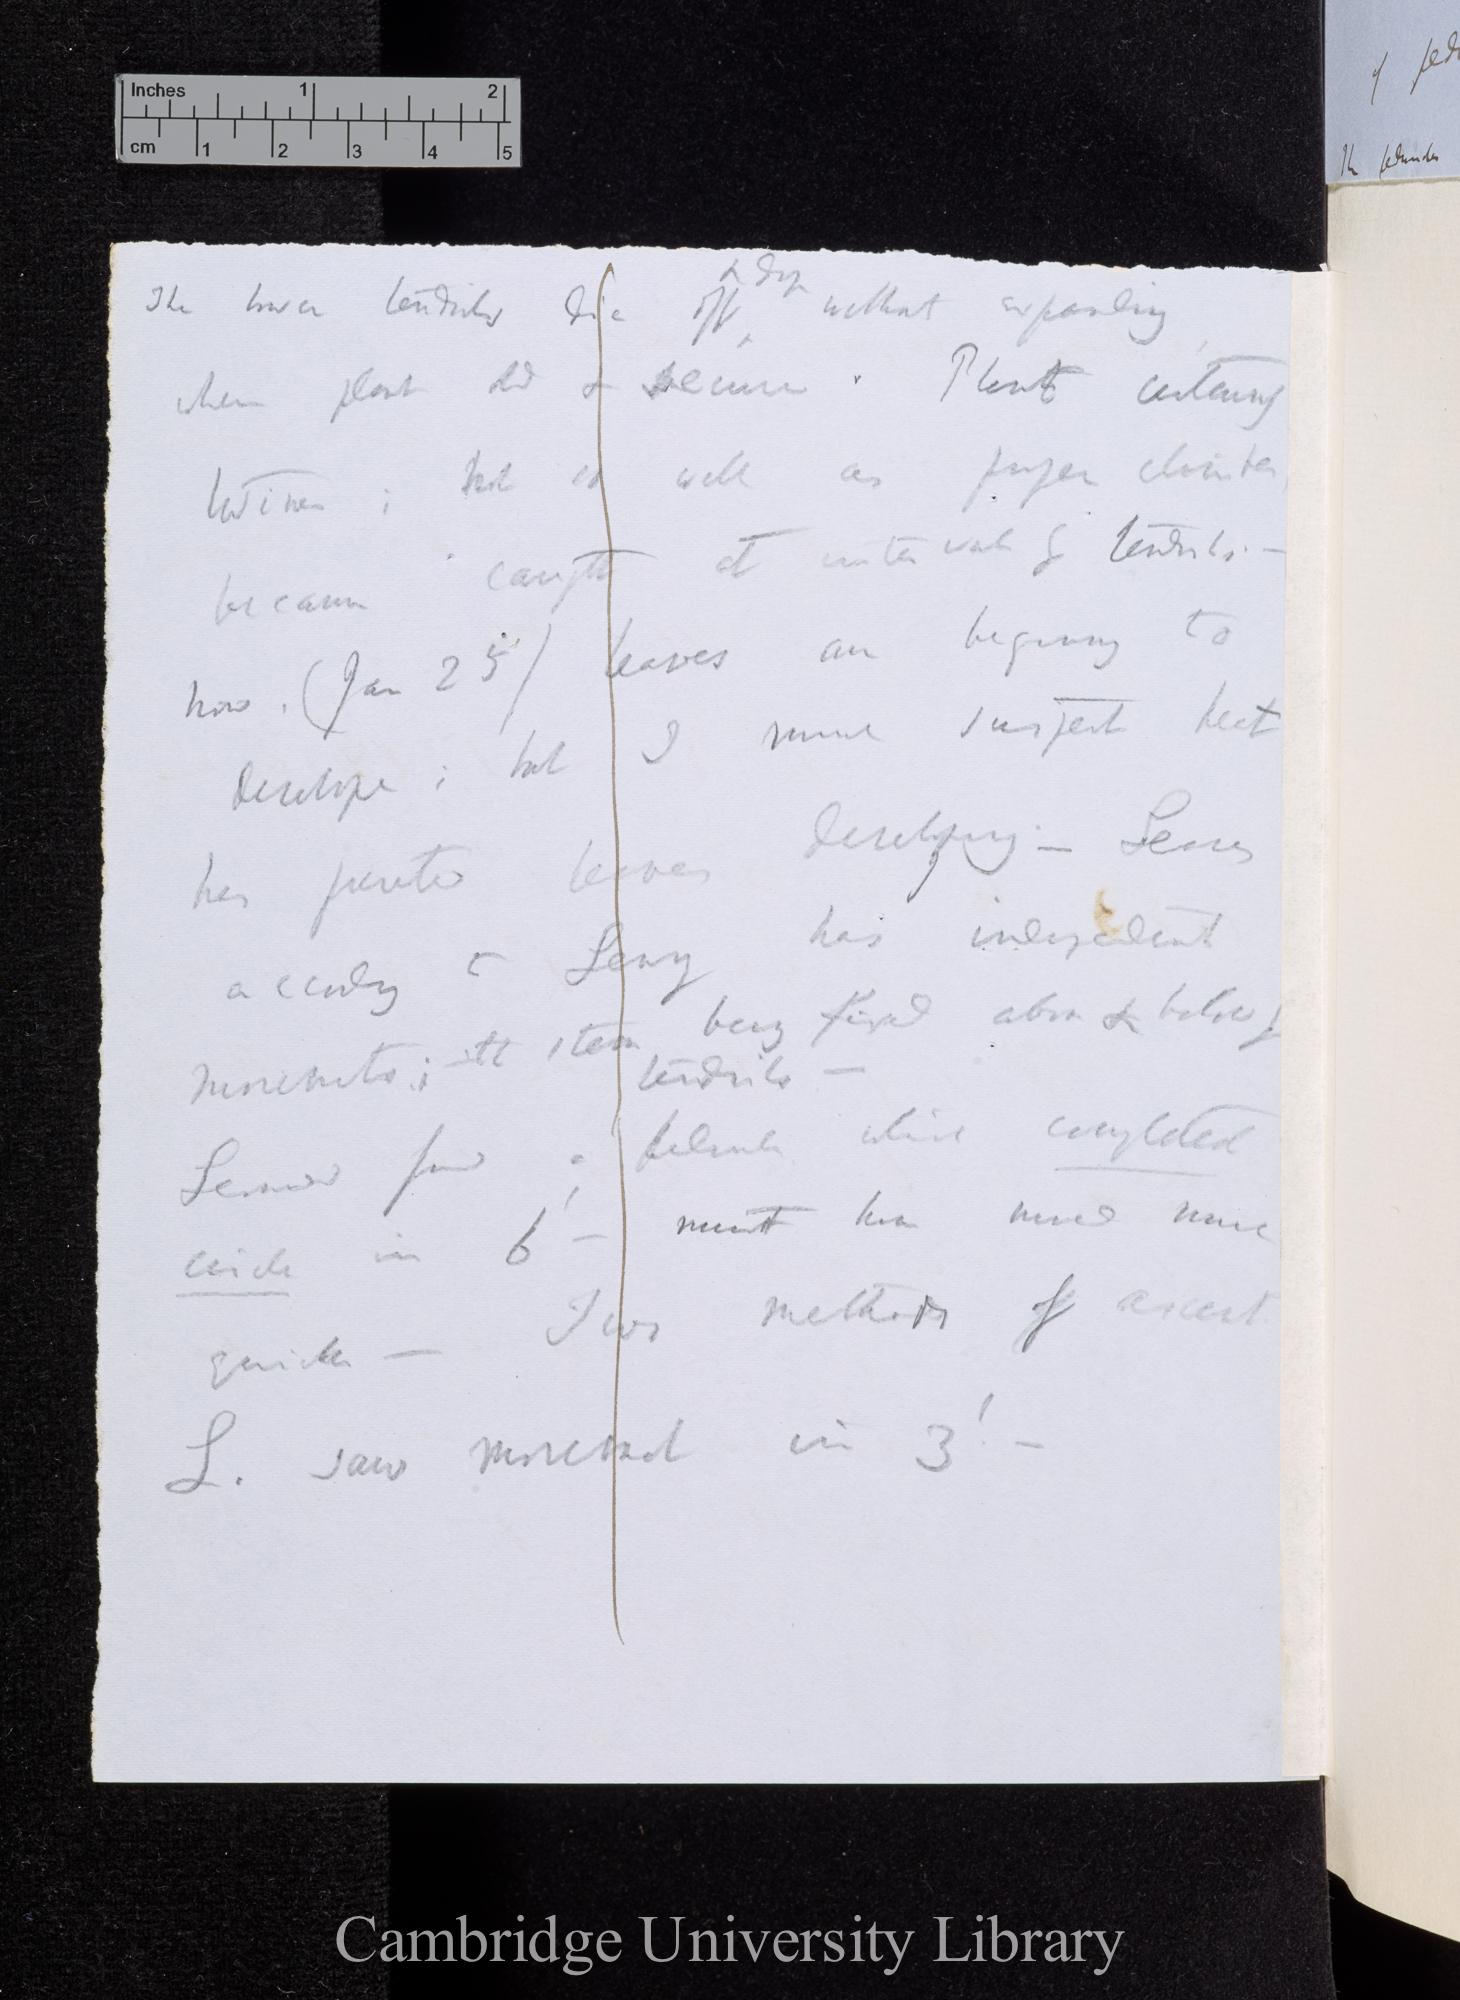 Inches 1 2
cm 1 2 3 4 5
The lower tendrils die off & drop without expanding
when plant old & secure. Plant certainly
twines; but not so well as proper climber,
because caught at intervals by tendrils.—
now. (Jan 25) leaves are beginning to
develope; but I must suspect heat
has leaves developing.— Leaves
according to has independent
movements; the stem being fixed above & below by
tendrils —
found a peduncle which completed
circle in 6' — must have moved more
quicker — Two methods of ascent.
L. saw movement in 3'. —
of
The peduncles
Cambridge University Library